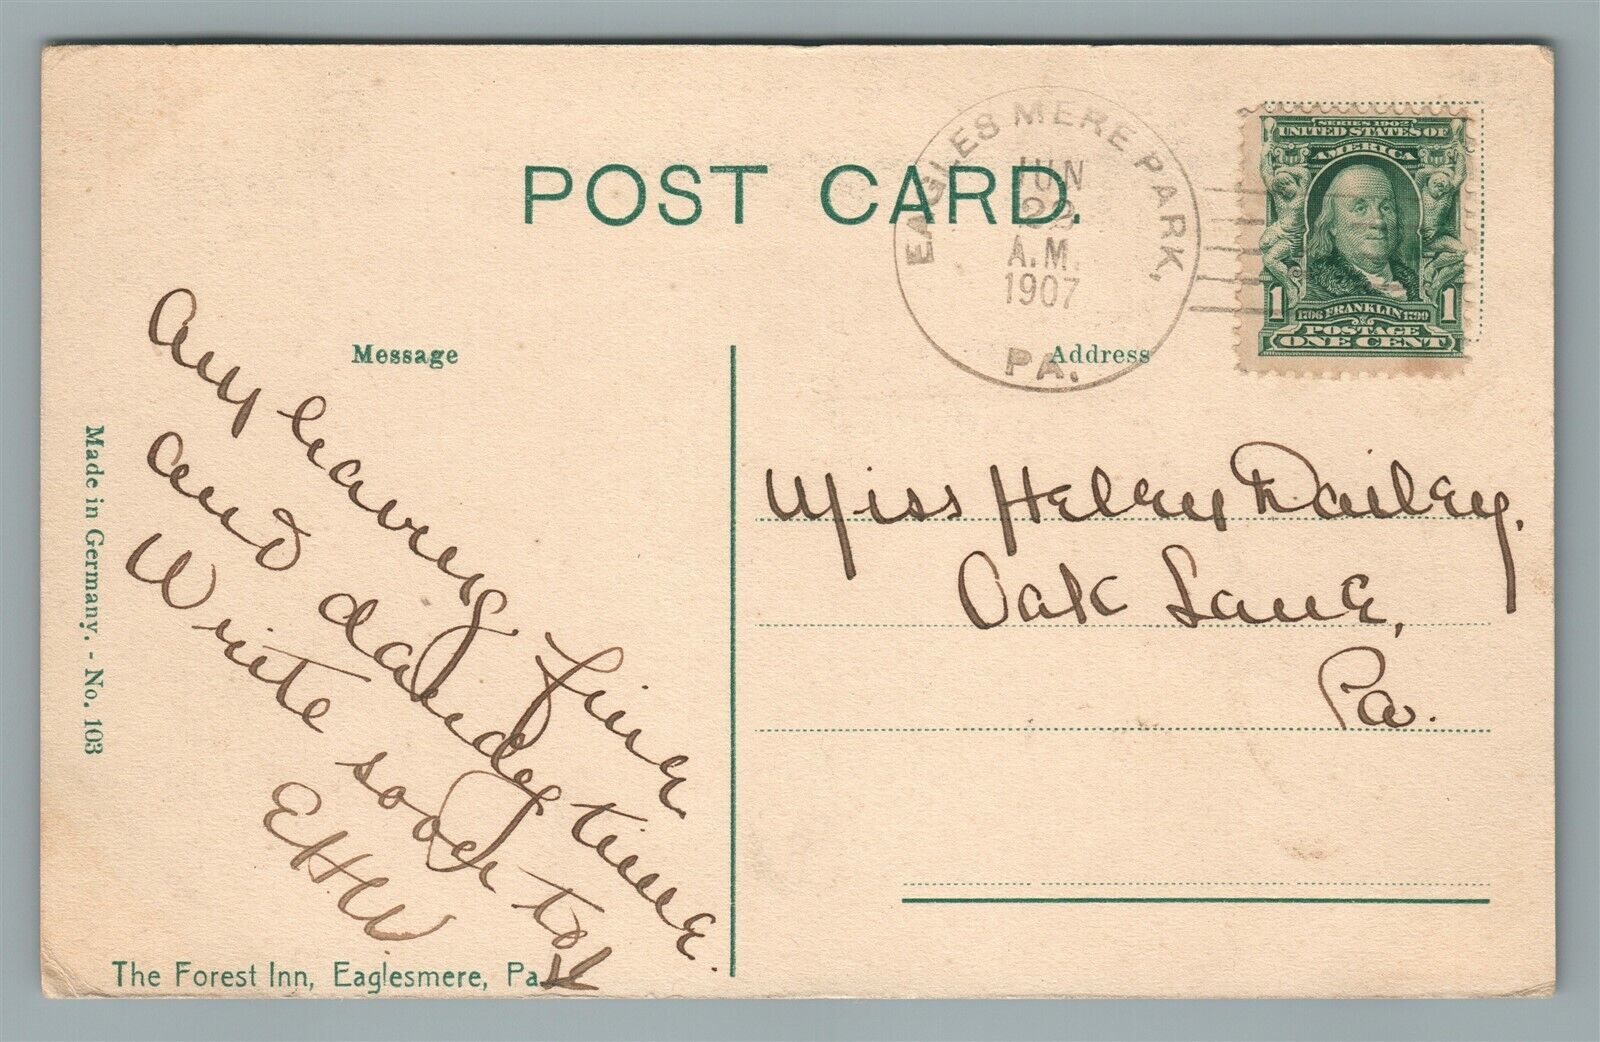 POST CARD.
EAGLES MERE PARK,
JUN
A.M.
1907
PA.
SERIES 1902
UNITED STATES OF
AMERICA
1 1
1706 FRANKLIN 1790
POSTAGE
ONE CENT
Message
Address
Am having fine
and dandy time.
Write soon to
E.H.W.
Miss Helen Dailey,
Oak Lane,
Pa.
Made in Germany. - No. 103
The Forest Inn, Eaglesmere, Pa.